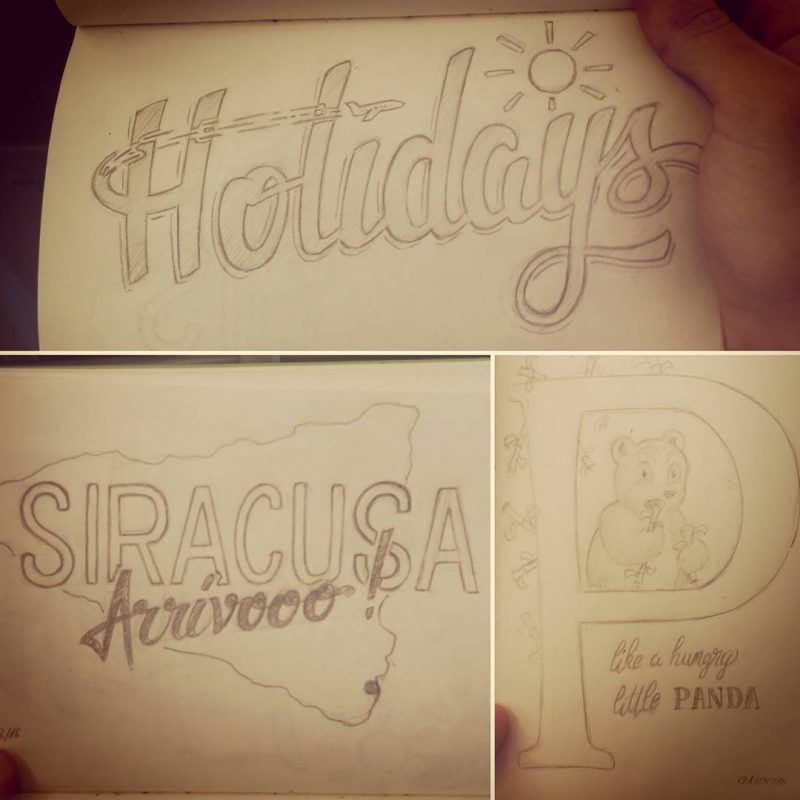 Holidays
SIRACUSA
Arrivooo!
P
like a hungry
little PANDA